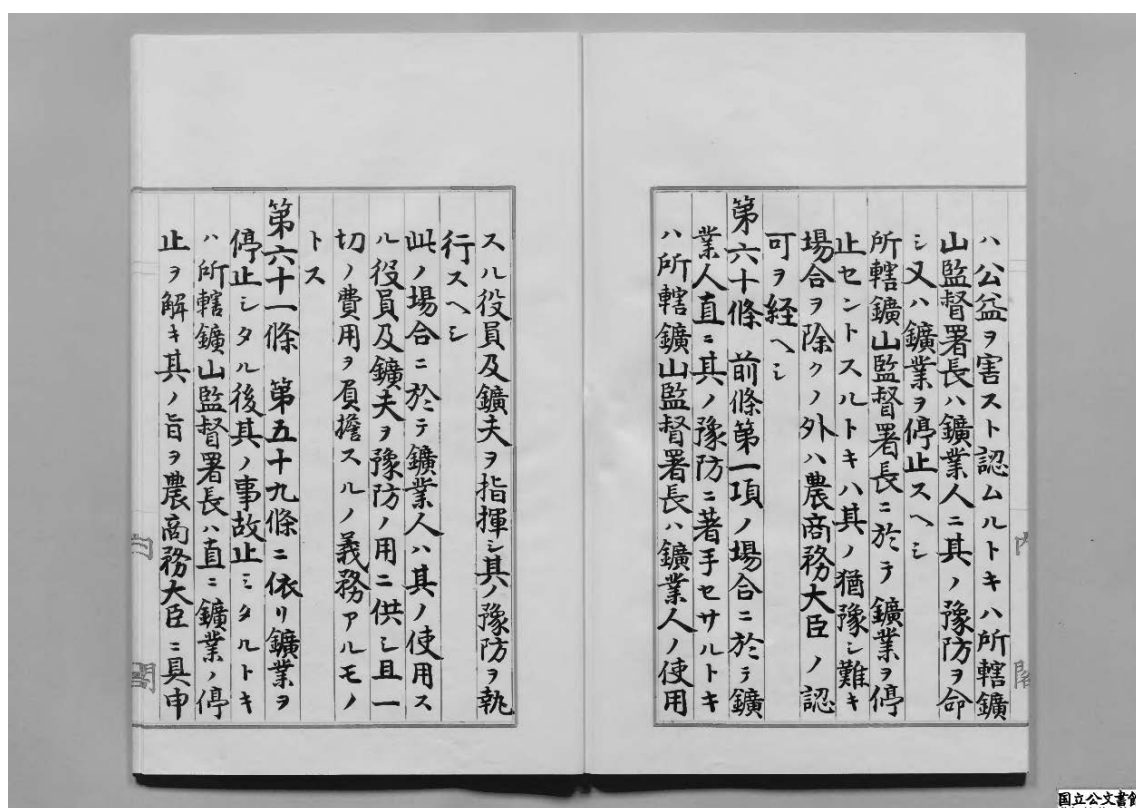 ハ公益ヲ害スト認ムルトキハ所轄鑛
山監督署長ハ鑛業人ニ其ノ豫防ヲ命
シ又ハ鑛業ヲ停止スヘシ
所轄鑛山監督署長ニ於テ鑛業ヲ停
止セントスルトキハ其ノ猶豫シ難キ
場合ヲ除クノ外ハ農商務大臣ノ認
可ヲ経ヘシ
第六十條 前條第一項ノ場合ニ於テ鑛
業人直ニ其ノ豫防ニ著手セサルトキ
ハ所轄鑛山監督署長ハ鑛業人ノ使用
スル役員及鑛夫ヲ指揮シ其ノ豫防ヲ執
行スヘシ
此ノ場合ニ於テ鑛業人ハ其ノ使用ス
ル役員及鑛夫ヲ豫防ノ用ニ供シ且一
切ノ費用ヲ負擔スルノ義務アルモノ
トス
第六十一條 第五十九條ニ依リ鑛業ヲ
停止シタル後其ノ事故止ミタルトキ
ハ所轄鑛山監督署長ハ直ニ鑛業ノ停
止ヲ解キ其ノ旨ヲ農商務大臣ニ具申
内閣
内閣
国立公文書館